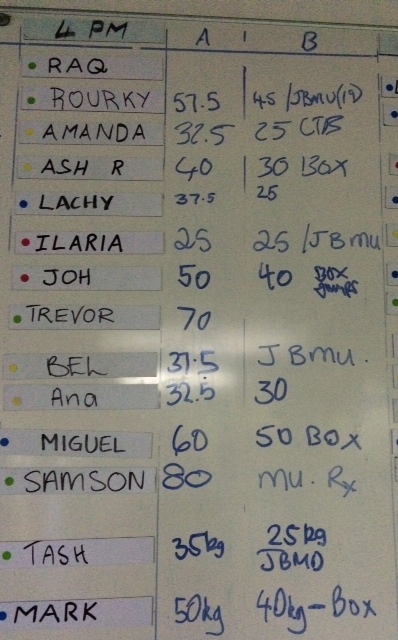 4 PM A B
RAQ
ROURKY 57.5 45 /JBMU(12)
AMANDA 32.5 25 CTB
ASH R 40 30 BOX
LACHY 37.5 25
ILARIA 25 25 /JBMU
JOH 50 40 BOX
Jumps
TREVOR 70
BEL 37.5 JBMU.
Ana 32.5 30
MIGUEL 60 50 BOX
SAMSON 80 MU. Rx
TASH 35kg 25kg
JBMD
MARK 50kg 40kg - BOX